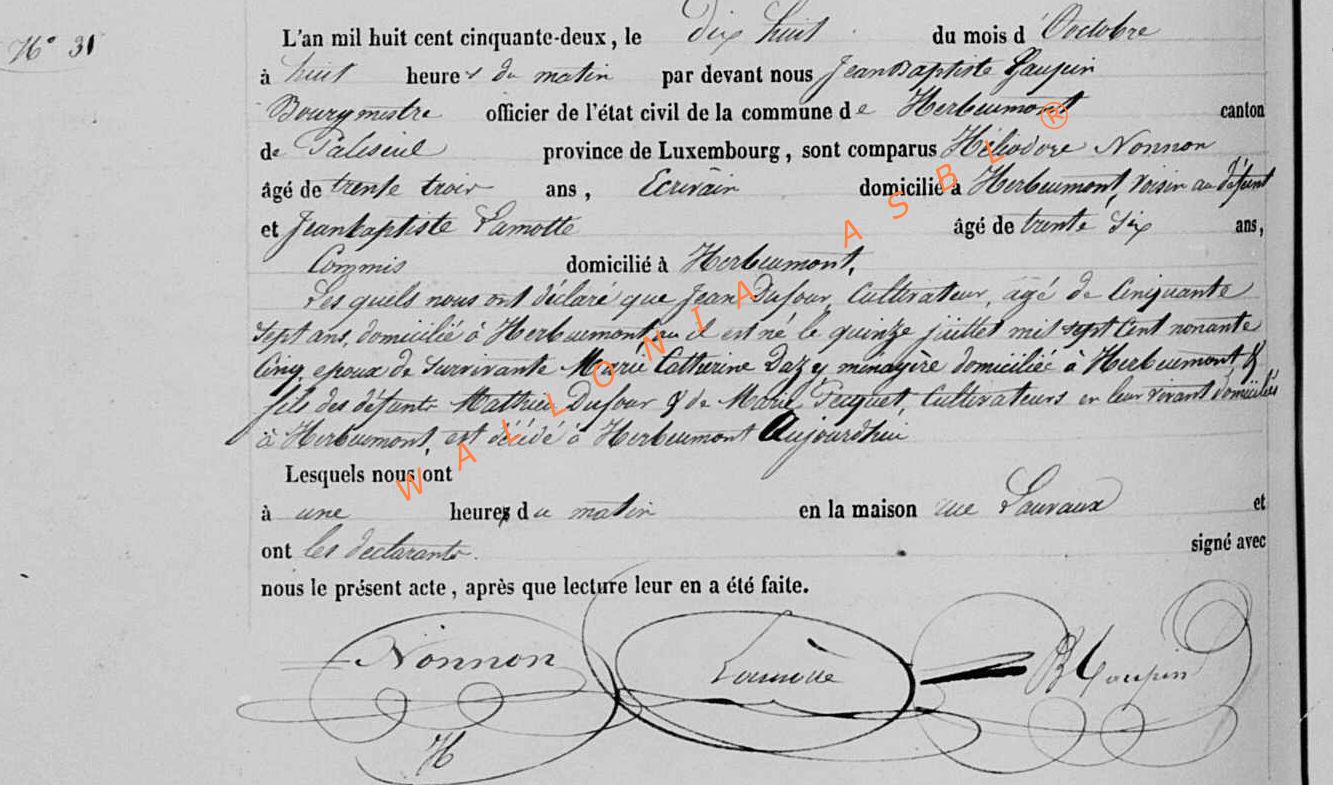 N° 31
L'an mil huit cent cinquante-deux, le dix huit du mois d'Octobre
à huit heures du matin par devant nous Jean Baptiste Gaupin
Bourgmestre officier de l'état civil de la commune de Herbeumont canton
de Paliseul province de Luxembourg, sont comparus Héliodore Nonnon
âgé de trente trois ans, Ecrivain domicilié à Herbeumont, voisin au défunt
et Jeanbaptiste Lamotte âgé de trente six ans,
Commis domicilié à Herbeumont,
Les quels nous ont déclaré que Jean Dufour, Cultivateur, agé de Cinquante
sept ans, domicilié à Herbeumont, ou il est né le quinze juillet mil sept cent nonante
Cinq epoux de survivante Marie Catherine Dazy ménagère domiciliée à Herbeumont &
fils des défunts Mathieu Dufour & de Marie Pecquet, Cultivateurs en leur vivant domiciliés
à Herbeumont, est décédé à Herbeumont Aujourdhui
Lesquels nous ont
à une heure du matin en la maison rue Lauvaux et
ont les déclarants signé avec
nous le présent acte, après que lecture leur en a été faite.
Nonnon Lamotte JB Gaupin
H
WALLONIA ASBL ®